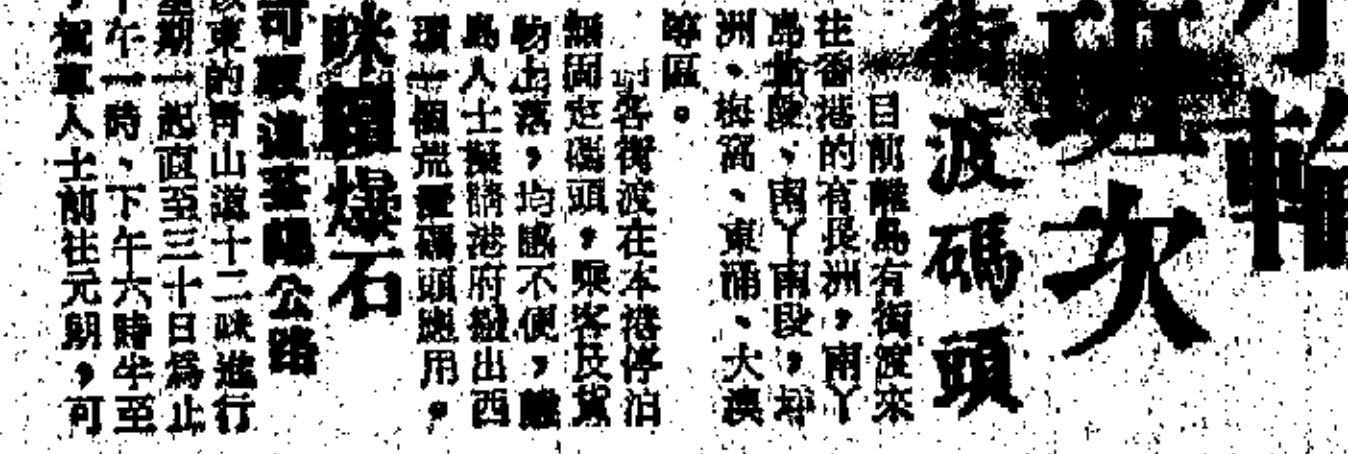 輪
班次
街渡碼頭
目前離島有街渡來
往香港的有長洲，南丫
島北段、南丫南段，坪
洲、梅窩、東涌、大澳
等區。
客街渡在本港停泊
無固定碼頭，乘客及貨
物上落，均感不便，離
島人士擬請港府撥出西
環一個荒置碼頭應用。
咪爆石
可取道荃錦公路
東的青山道十二咪進行
星期一起直至三十日為止
午一時、下午六時半至
駕車人士前往元朗，可